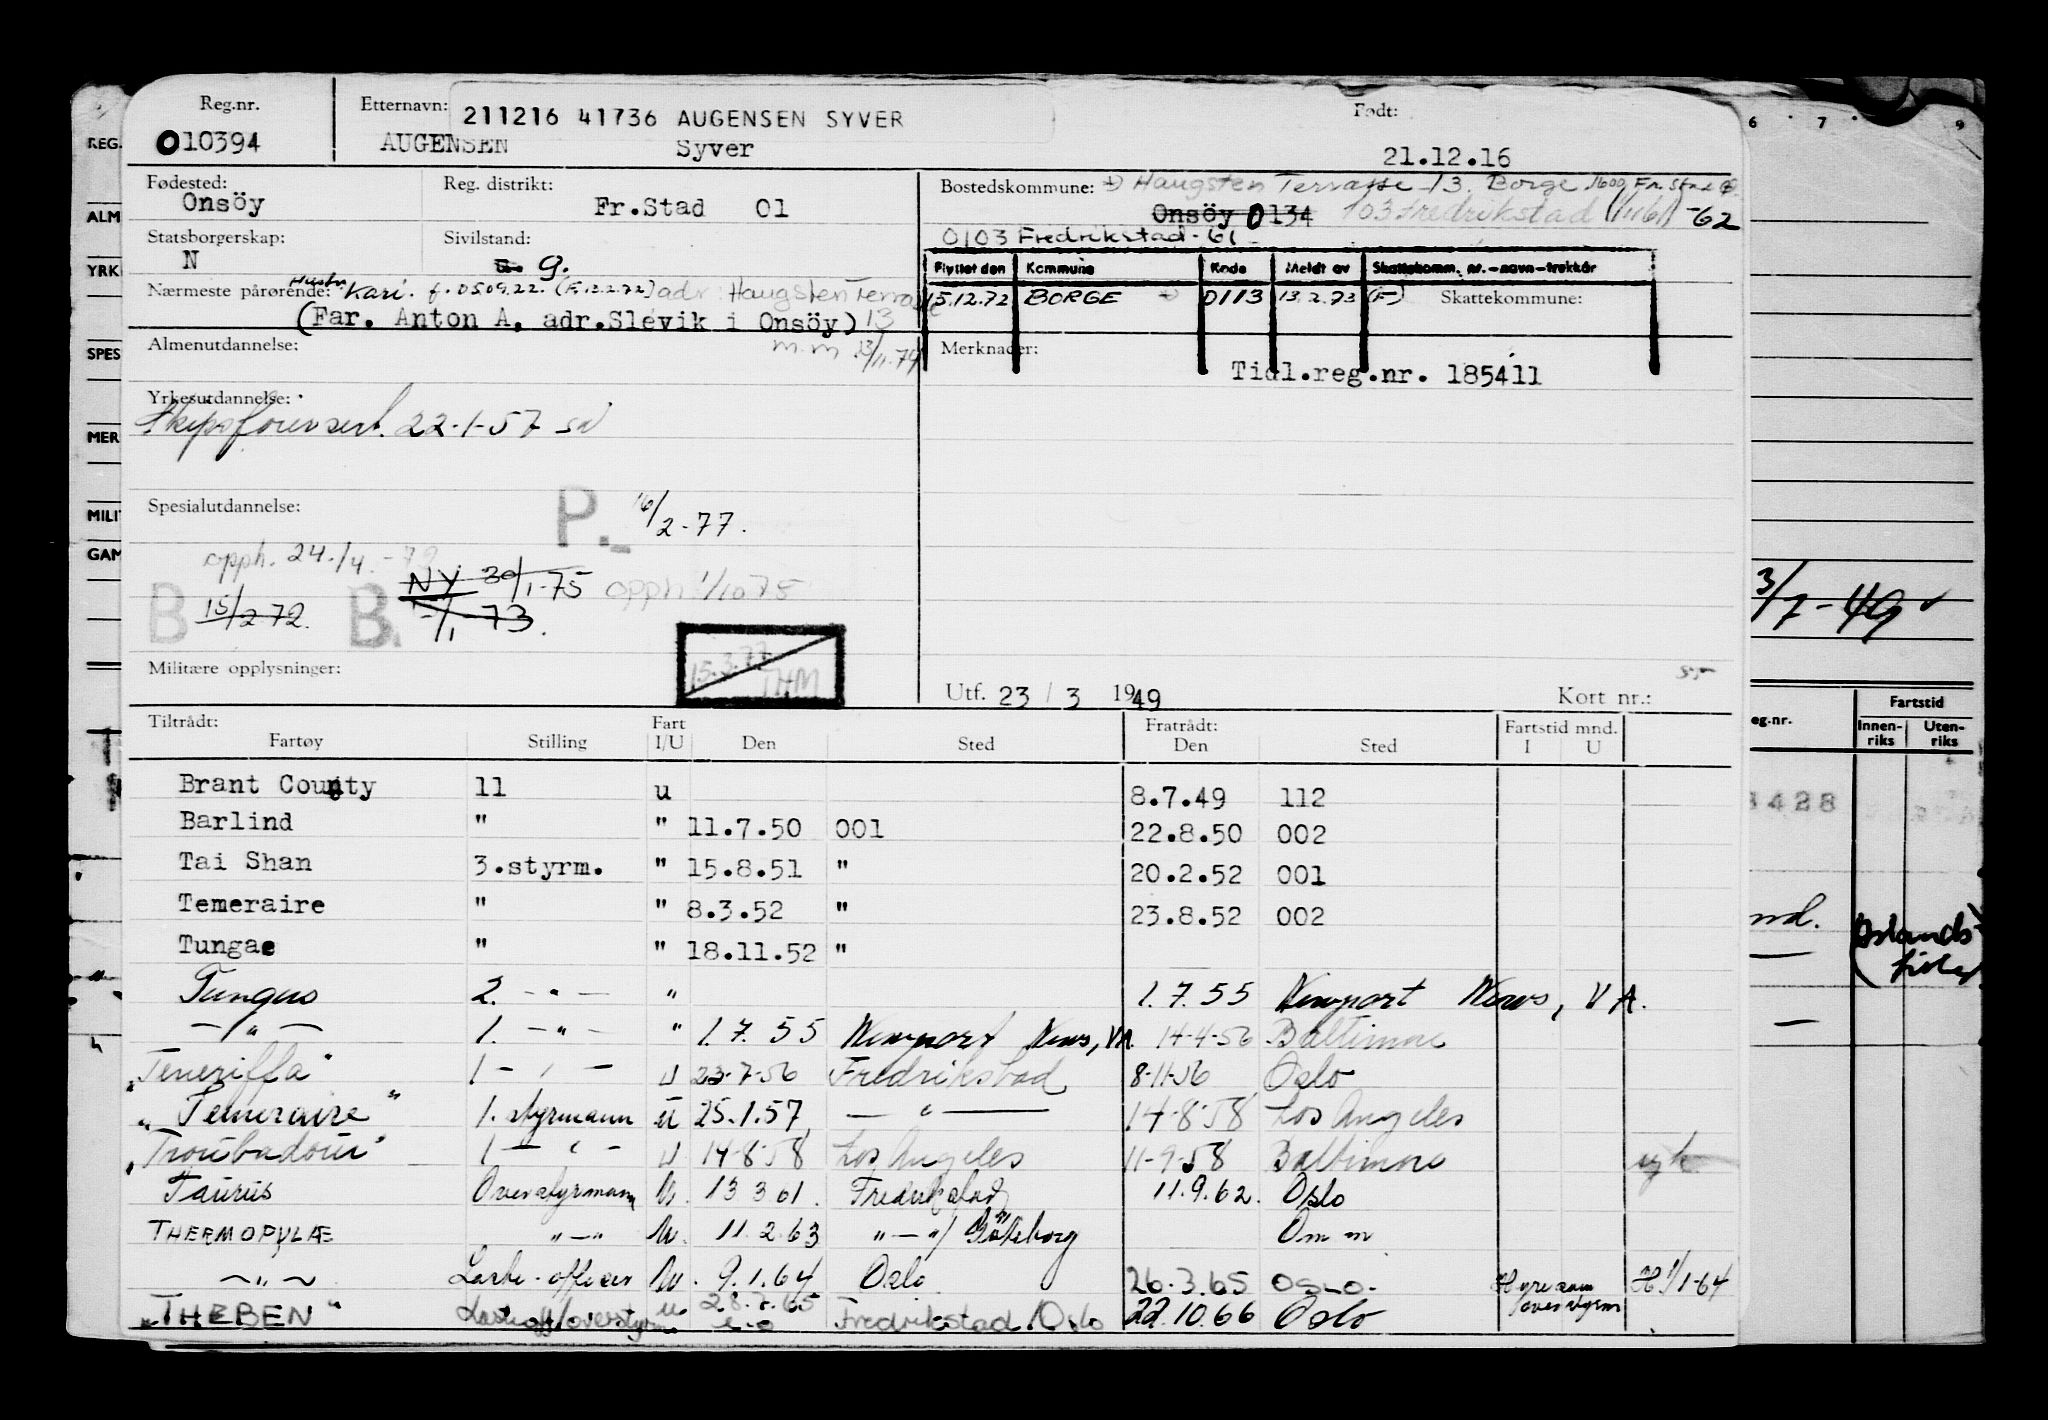 Reg.nr. Etternavn: 211216 41736 AUGENSEN SYVER Født:
010394 AUGENSEN Syver 21.12.16
Fødested: Reg. distrikt: Bostedskommune: Haugsten Terrasse 13. Borge 1600 Fr.stad
Onsöy Fr.Stad 01 Onsöy 0134 103 Fredrikstad -62
Statsborgerskap: Sivilstand: 0103 Fredrikstad - 61
N g.
Flyttet den Kommune Kode Meldt av Skattekomm. nr.-navn-trekkår
Nærmeste pårørende: Hustru Kari. f. 050922. (F.12.2.72) adr. Haugsten Terrasse 13
15.12.72 BORGE 0113 13.2.73 (F) Skattekommune:
(Far. Anton A, adr.Slevik i Onsöy)
Almenutdannelse: m.m 13/11.74 Merknader:
Tidl.reg.nr. 185411
Yrkesutdannelse:
Skipsförersert. 22-1-57
Spesialutdannelse: P. 16/2-77.
opph. 24./4.-72
B 15/2 72. B. NY 30/1-75 opph 1/10 75
7/1-73.
Militære opplysninger: 15.3.77 THM
Utf. 23 / 3 1949 Kort nr.:
Tiltrådt: Fart Fratrådt: Fartstid mnd.
Fartøy Stilling I/U Den Sted Den Sted I U
Brant County 11 u 8.7.49 112
Barlind " " 11.7.50 001 22.8.50 002
Tai Shan 3.styrm. " 15.8.51 " 20.2.52 001
Temeraire " " 8.3.52 " 23.8.52 002
Tungae " " 18.11.52 "
Tungus 2. -"- " 1.7.55 Newport News, VA.
-"- 1. -"- " 1.7.55 Newport News, VA. 14-4-56 Baltimore
"Teneriffa" 1 -"- u 23-7-56 Fredrikstad 8-11-56 Oslo
"Temeraire" 1. styrmann u 25.1.57 -"- 14-8-58 Los Angeles
"Troubadour" 1 -"- u 14-8-58 Los Angeles 11-9-58 Baltimore
Taurus Overstyrmann U. 13 3 61. Fredrikstad 11.9.62. Oslo
THERMOPYLÆ "-" U. 11.2.63 "-"/Göteborg Om m
-"- Laste-officer U. 9.1.64 Oslo 26.3.65 OSLO. Hyre som overstyrm H 1/1-64
"THEBEN" Lasteoff/overstyrm u. 28.7.65 Fredrikstad/Oslo 22.10.66 Oslo
REG.
ALM
YRK
SPES
MER
MILI
GAM
6 7 9
3/7-49
eg.nr. Fartstid
Innen-riks Uten-riks
428
md.